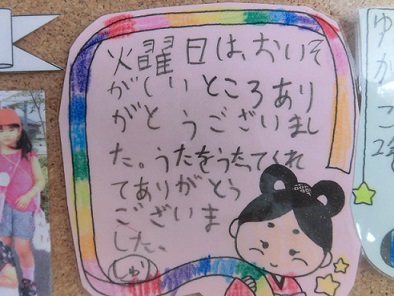 火曜日は、おいそ
がしいところあり
がとうございまし
た。うたをうたってくれ
てありがとう
ございま
した。
しゅり
ゆ
か